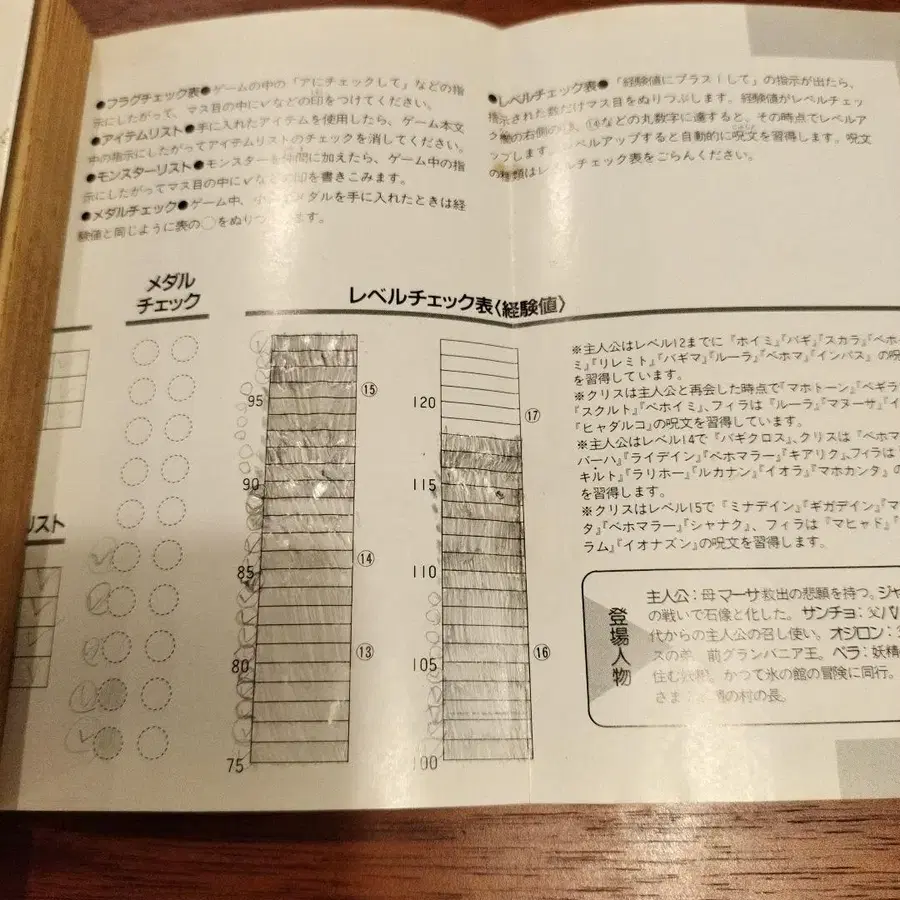 ●フラグチェック表●ゲームの中の「アにチェックして」などの指
示にしたがって、マス目の中に✓などの印をつけてください。
●アイテムリスト●手に入れたアイテムを使用したら、ゲーム本文
中の指示にしたがってアイテムリストのチェックを消してください。
●モンスターリスト●モンスターを仲間に加えたら、ゲーム中の指
示にしたがってマス目の中に✓などの印を書きこみます。
●メダルチェック●ゲーム中、小さなメダルを手に入れたときは経
験値と同じように表の○をぬりつぶします。
●レベルチェック表●「経験値にプラス1して」の指示が出たら、
指示された数だけマス目をぬりつぶします。経験値がレベルチェッ
ク欄の右側の⑬、⑭などの丸数字に達すると、その時点でレベルア
ップします。レベルアップすると自動的に呪文を習得します。呪文
の種類はレベルチェック表をごらんください。
メダル
チェック
レベルチェック表〈経験値〉
リスト
95
90
85
80
75
⑮
⑭
⑬
120
115
110
105
100
⑰
⑯
※主人公はレベル12までに『ホイミ』『バギ』『スカラ』『ベホ
ミ』『リレミト』『バギマ』『ルーラ』『ベホマ』『インパス』の呪
を習得しています。
※クリスは主人公と再会した時点で『マホトーン』『ベギラ
『スクルト』『ベホイミ』、フィラは『ルーラ』『マヌーサ』『イ
『ヒャダルコ』の呪文を習得しています。
※主人公はレベル14で『バギクロス』、クリスは『ベホマ
バーハ』『ライデイン』『ベホマラー』『キアリク』、フィラは
キルト』『ラリホー』『ルカナン』『イオラ』『マホカンタ』の
を習得します。
※クリスはレベル15で『ミナデイン』『ギガデイン』『マ
タ』『ベホマラー』『シャナク』、フィラは『マヒャド』『
ラム』『イオナズン』の呪文を習得します。
登場人物
主人公：母マーサ救出の悲願を持つ。ジャ
の戦いで石像と化した。サンチョ：父パ
代からの主人公の召し使い。オジロン：
スの弟。前グランバニア王。ベラ：妖精
住む妖精。かつて氷の館の冒険に同行。
さま：の村の長。